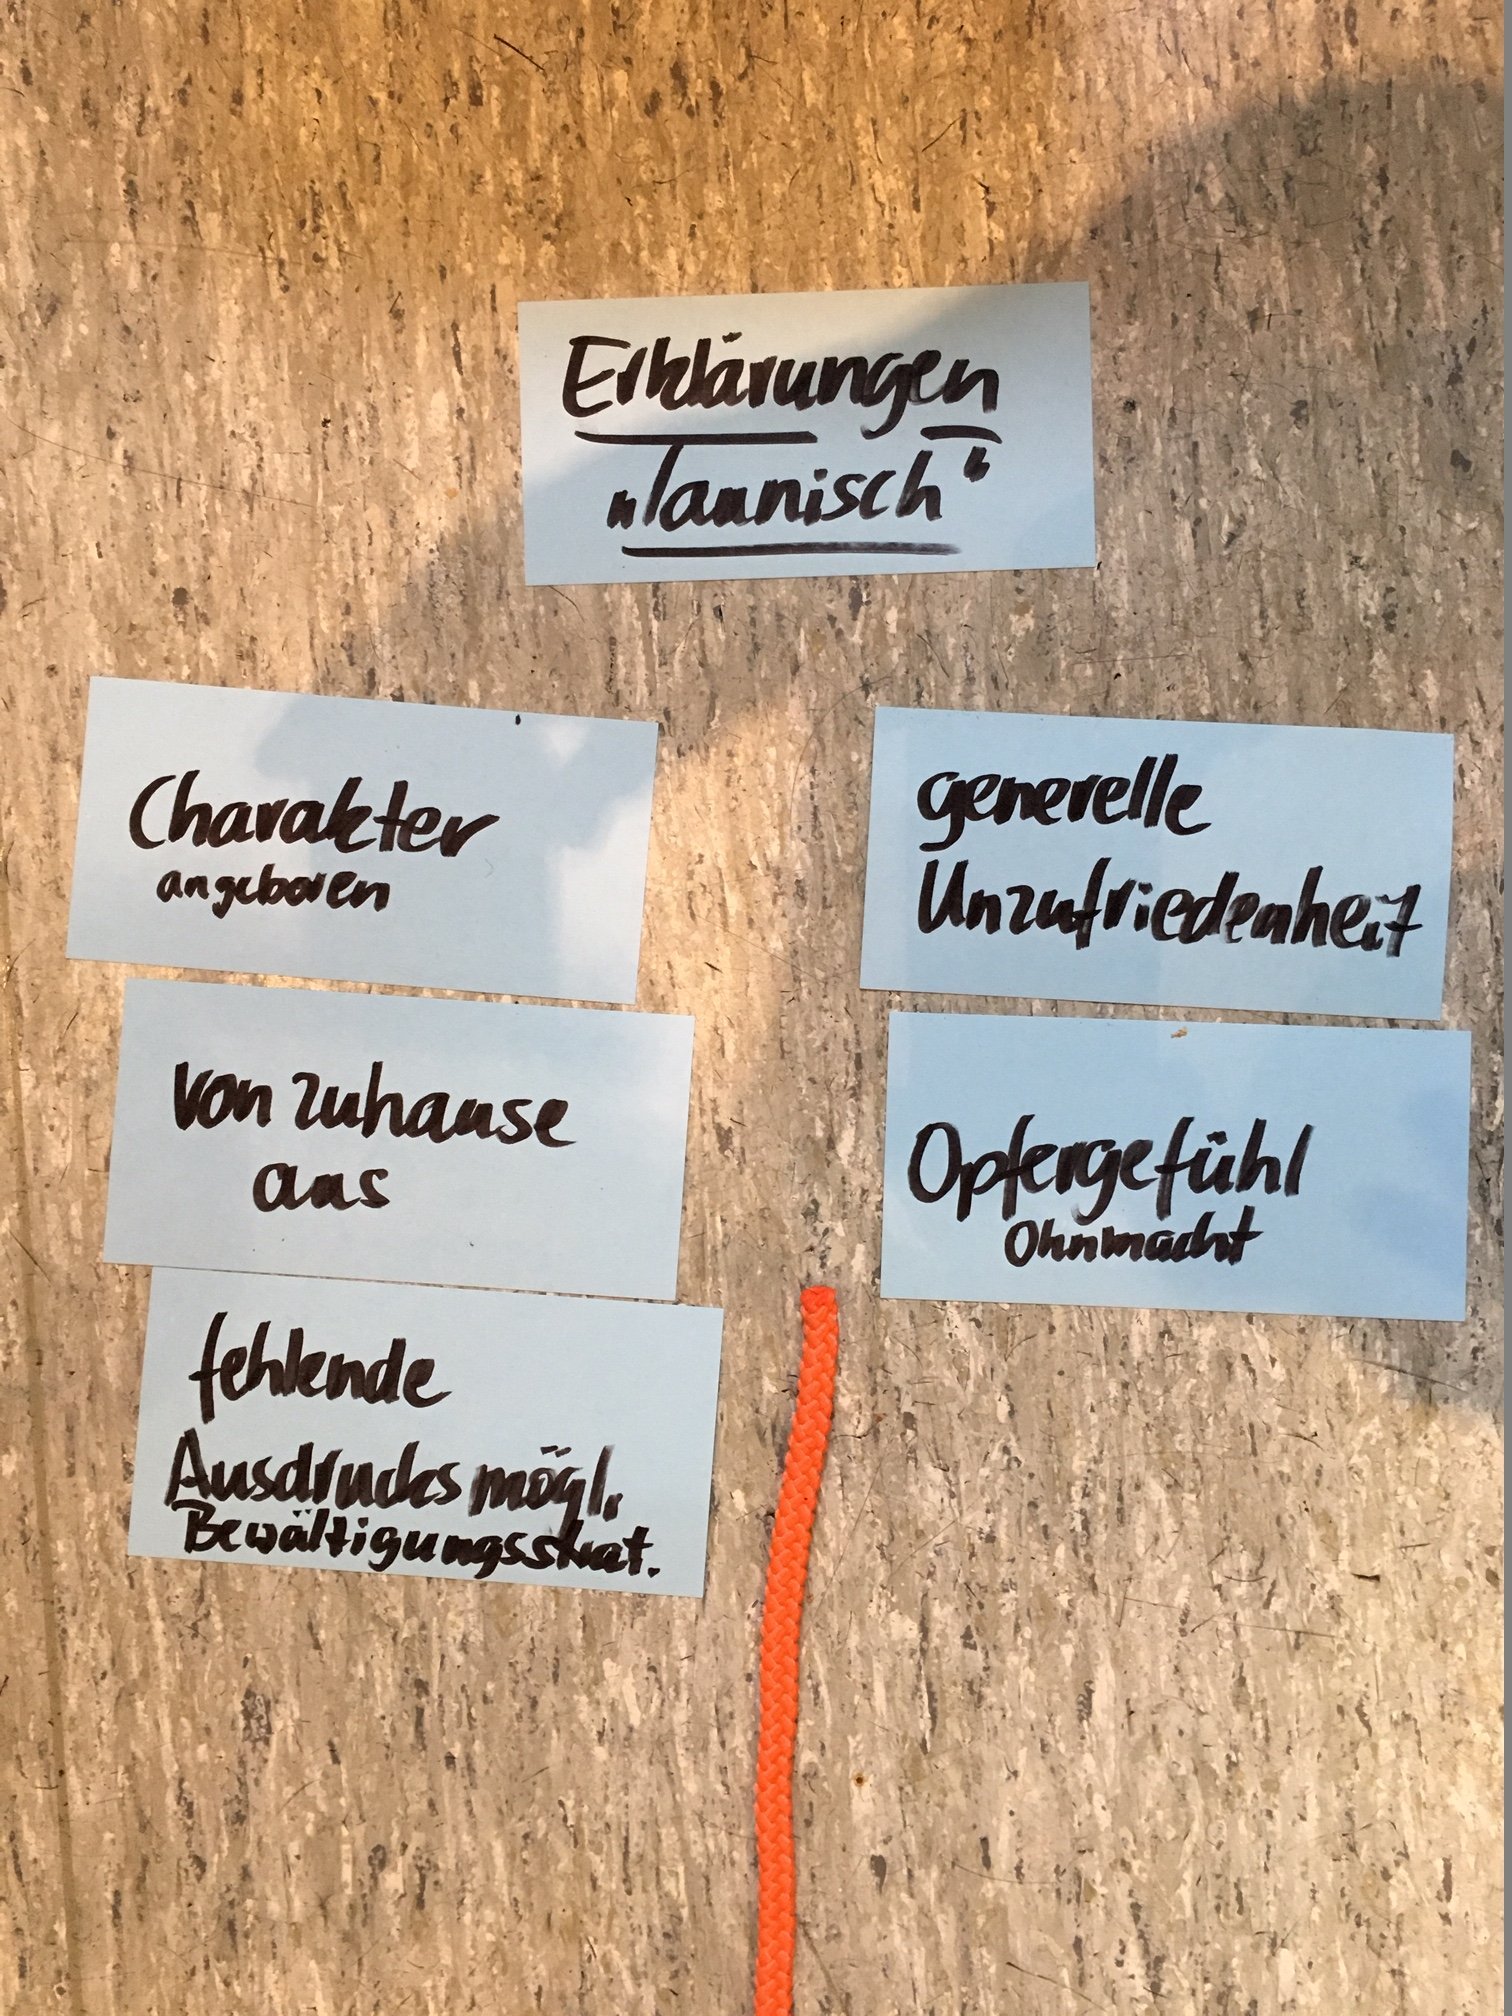 Erklärungen
„launisch“
Charakter
angeboren
von zuhause
aus
fehlende
Ausdrucksmögl.
Bewältigungsstrat.
generelle
Unzufriedenheit
Opfergefühl
Ohnmacht